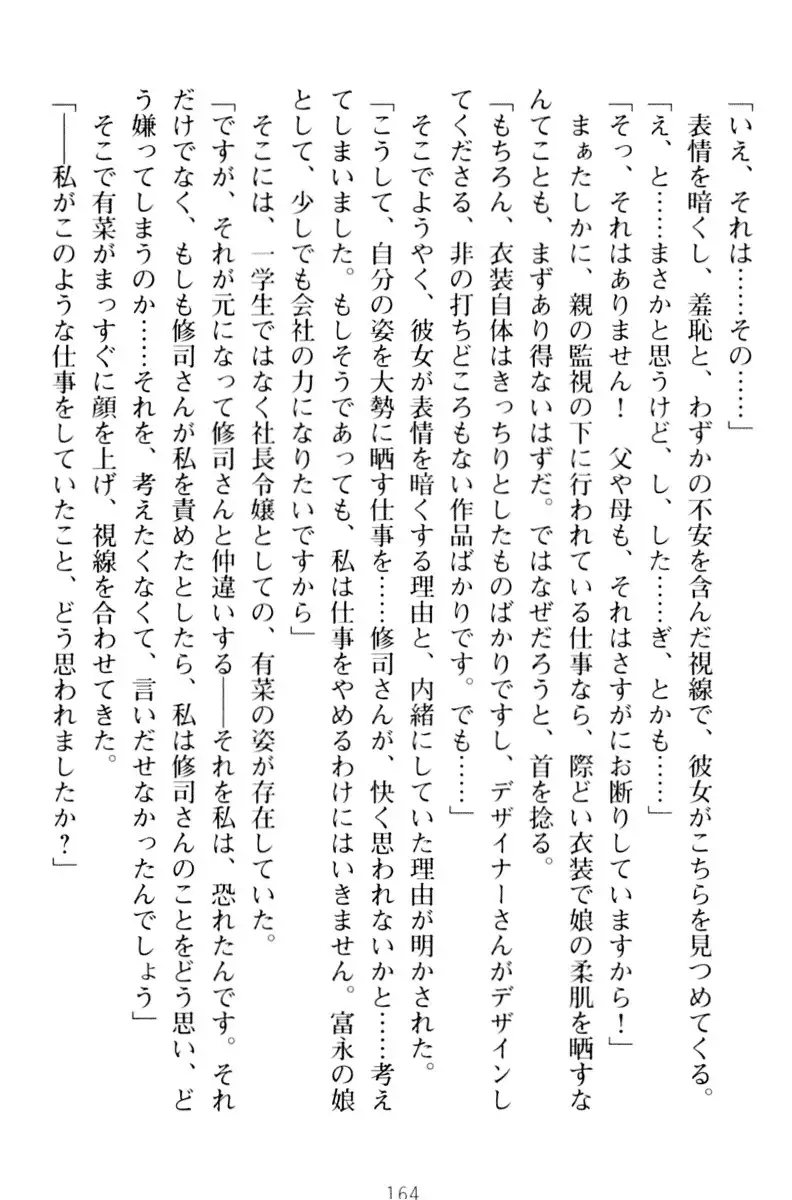 「いえ、それは……その……」
　表情を暗くし、羞恥と、わずかの不安を含んだ視線で、彼女がこちらを見つめてくる。
「え、と……まさかと思うけど、し、した……ぎ、とかも……」
「そっ、それはありません！　父や母も、それはさすがにお断りしていますから！」
　まぁたしかに、親の監視の下に行われている仕事なら、際どい衣装で娘の柔肌を晒すな
んてことも、まずあり得ないはずだ。ではなぜだろうと、首を捻る。
「もちろん、衣装自体はきっちりとしたものばかりですし、デザイナーさんがデザインし
てくださる、非の打ちどころもない作品ばかりです。でも……」
　そこでようやく、彼女が表情を暗くする理由と、内緒にしていた理由が明かされた。
「こうして、自分の姿を大勢に晒す仕事を……修司さんが、快く思われないかと……考え
てしまいました。もしそうであっても、私は仕事をやめるわけにはいきません。富永の娘
として、少しでも会社の力になりたいですから」
　そこには、一学生ではなく社長令嬢としての、有菜の姿が存在していた。
「ですが、それが元になって修司さんと仲違いする――それを私は、恐れたんです。それ
だけでなく、もしも修司さんが私を責めたとしたら、私は修司さんのことをどう思い、ど
う嫌ってしまうのか……それを、考えたくなくて、言いだせなかったんでしょう」
　そこで有菜がまっすぐに顔を上げ、視線を合わせてきた。
「――私がこのような仕事をしていたこと、どう思われましたか？」
164